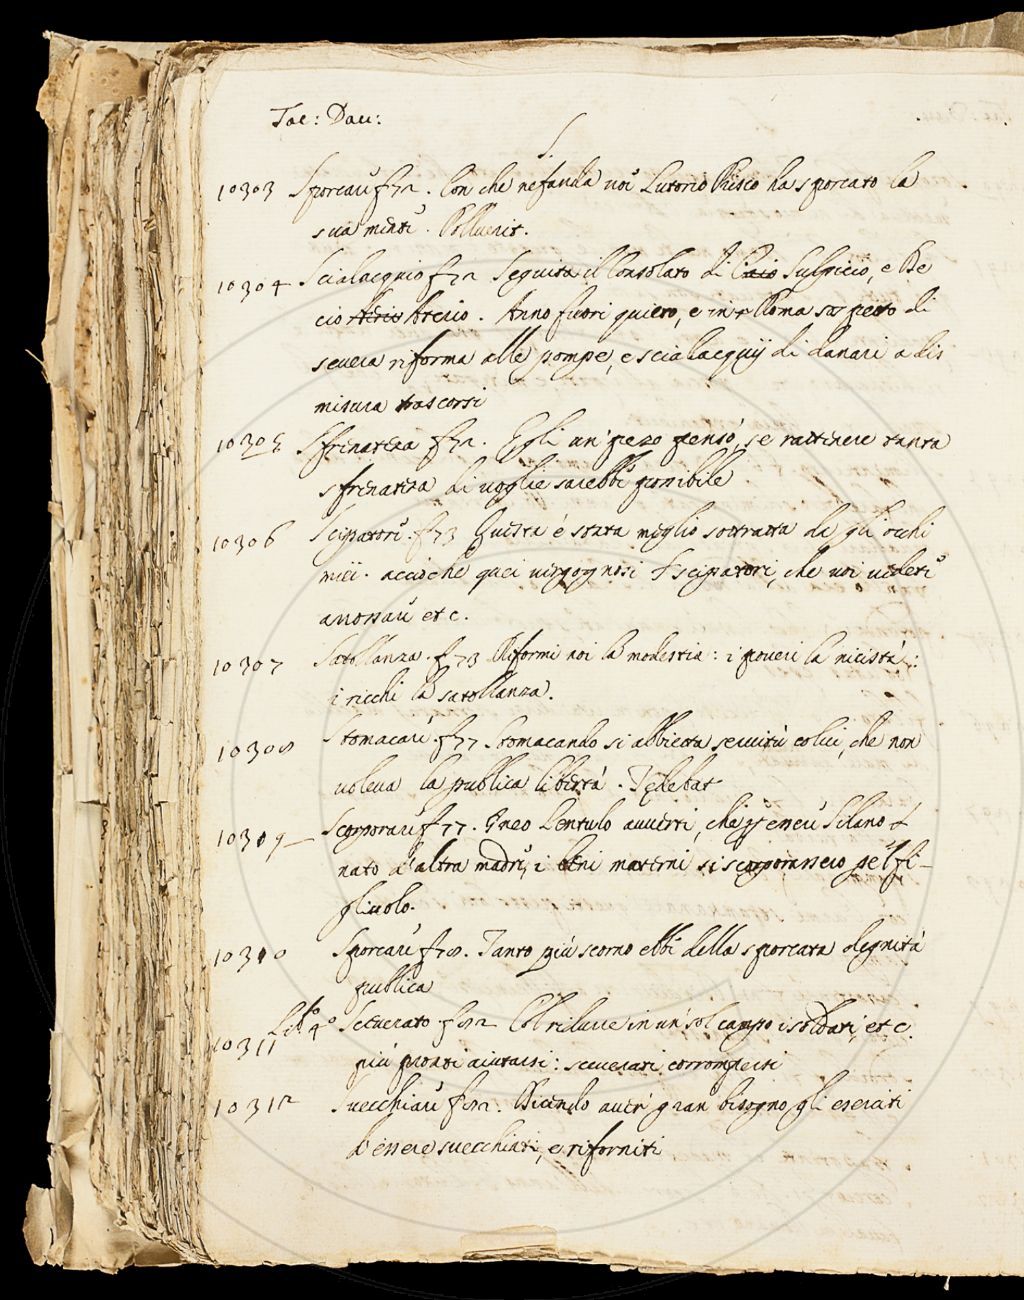 Tac: Dau:
S.
10303 Sporcare f 72. Con che nefanda voi Lutorio Prisco ha sporcato la
sua mente. Polluerit.
10304 Scialacquio f 72 Seguita il Consolato di Caio Sulpicio, e De
cio Aterio. Anno fuori quieto, e in Roma sospetto di
severa riforma alle pompe, e scialacquij di danari a dis
misura trascorsi
10305 Sfrenatezza f 72. Egli un' pezo pensò, se rattenere tanta
sfrenatezza di voglie sarebbe possibile
10306 Scipatori f 73 Questa è stata meglio sottratta da gli occhi
miei. acciochè quei vergognosi scipatori, che voi vedete
ammossare etc.
10307 Satollanza f 73 Riformi noi la modestia: i poveri la necistà:
i ricchi la satollanza.
10308 Stomacare f 77 Stomacando sì abbietta servitù colui, che non
voleva la publica libertà. Tędebat
10309 Scorporare f 77. Gneo Lentulo avvertì, che essere Silano
nato d'altra madre, i beni materni si scorporassero pe'l fi-
gliuolo.
10310 Sporcare f 78. Tanto più scorno ebbe della sporcata degnità
publica
Lib.º 4º
10311 Sceverato f 82 Col ridurre in un' sol campo i soldati, etc.
più pronti aiutarsi: sceverati corrompersi
10312 Svecchiare f 82. Dicendo aver' gran bisogno gli eserciti
d'essere svecchiati, e riforniti